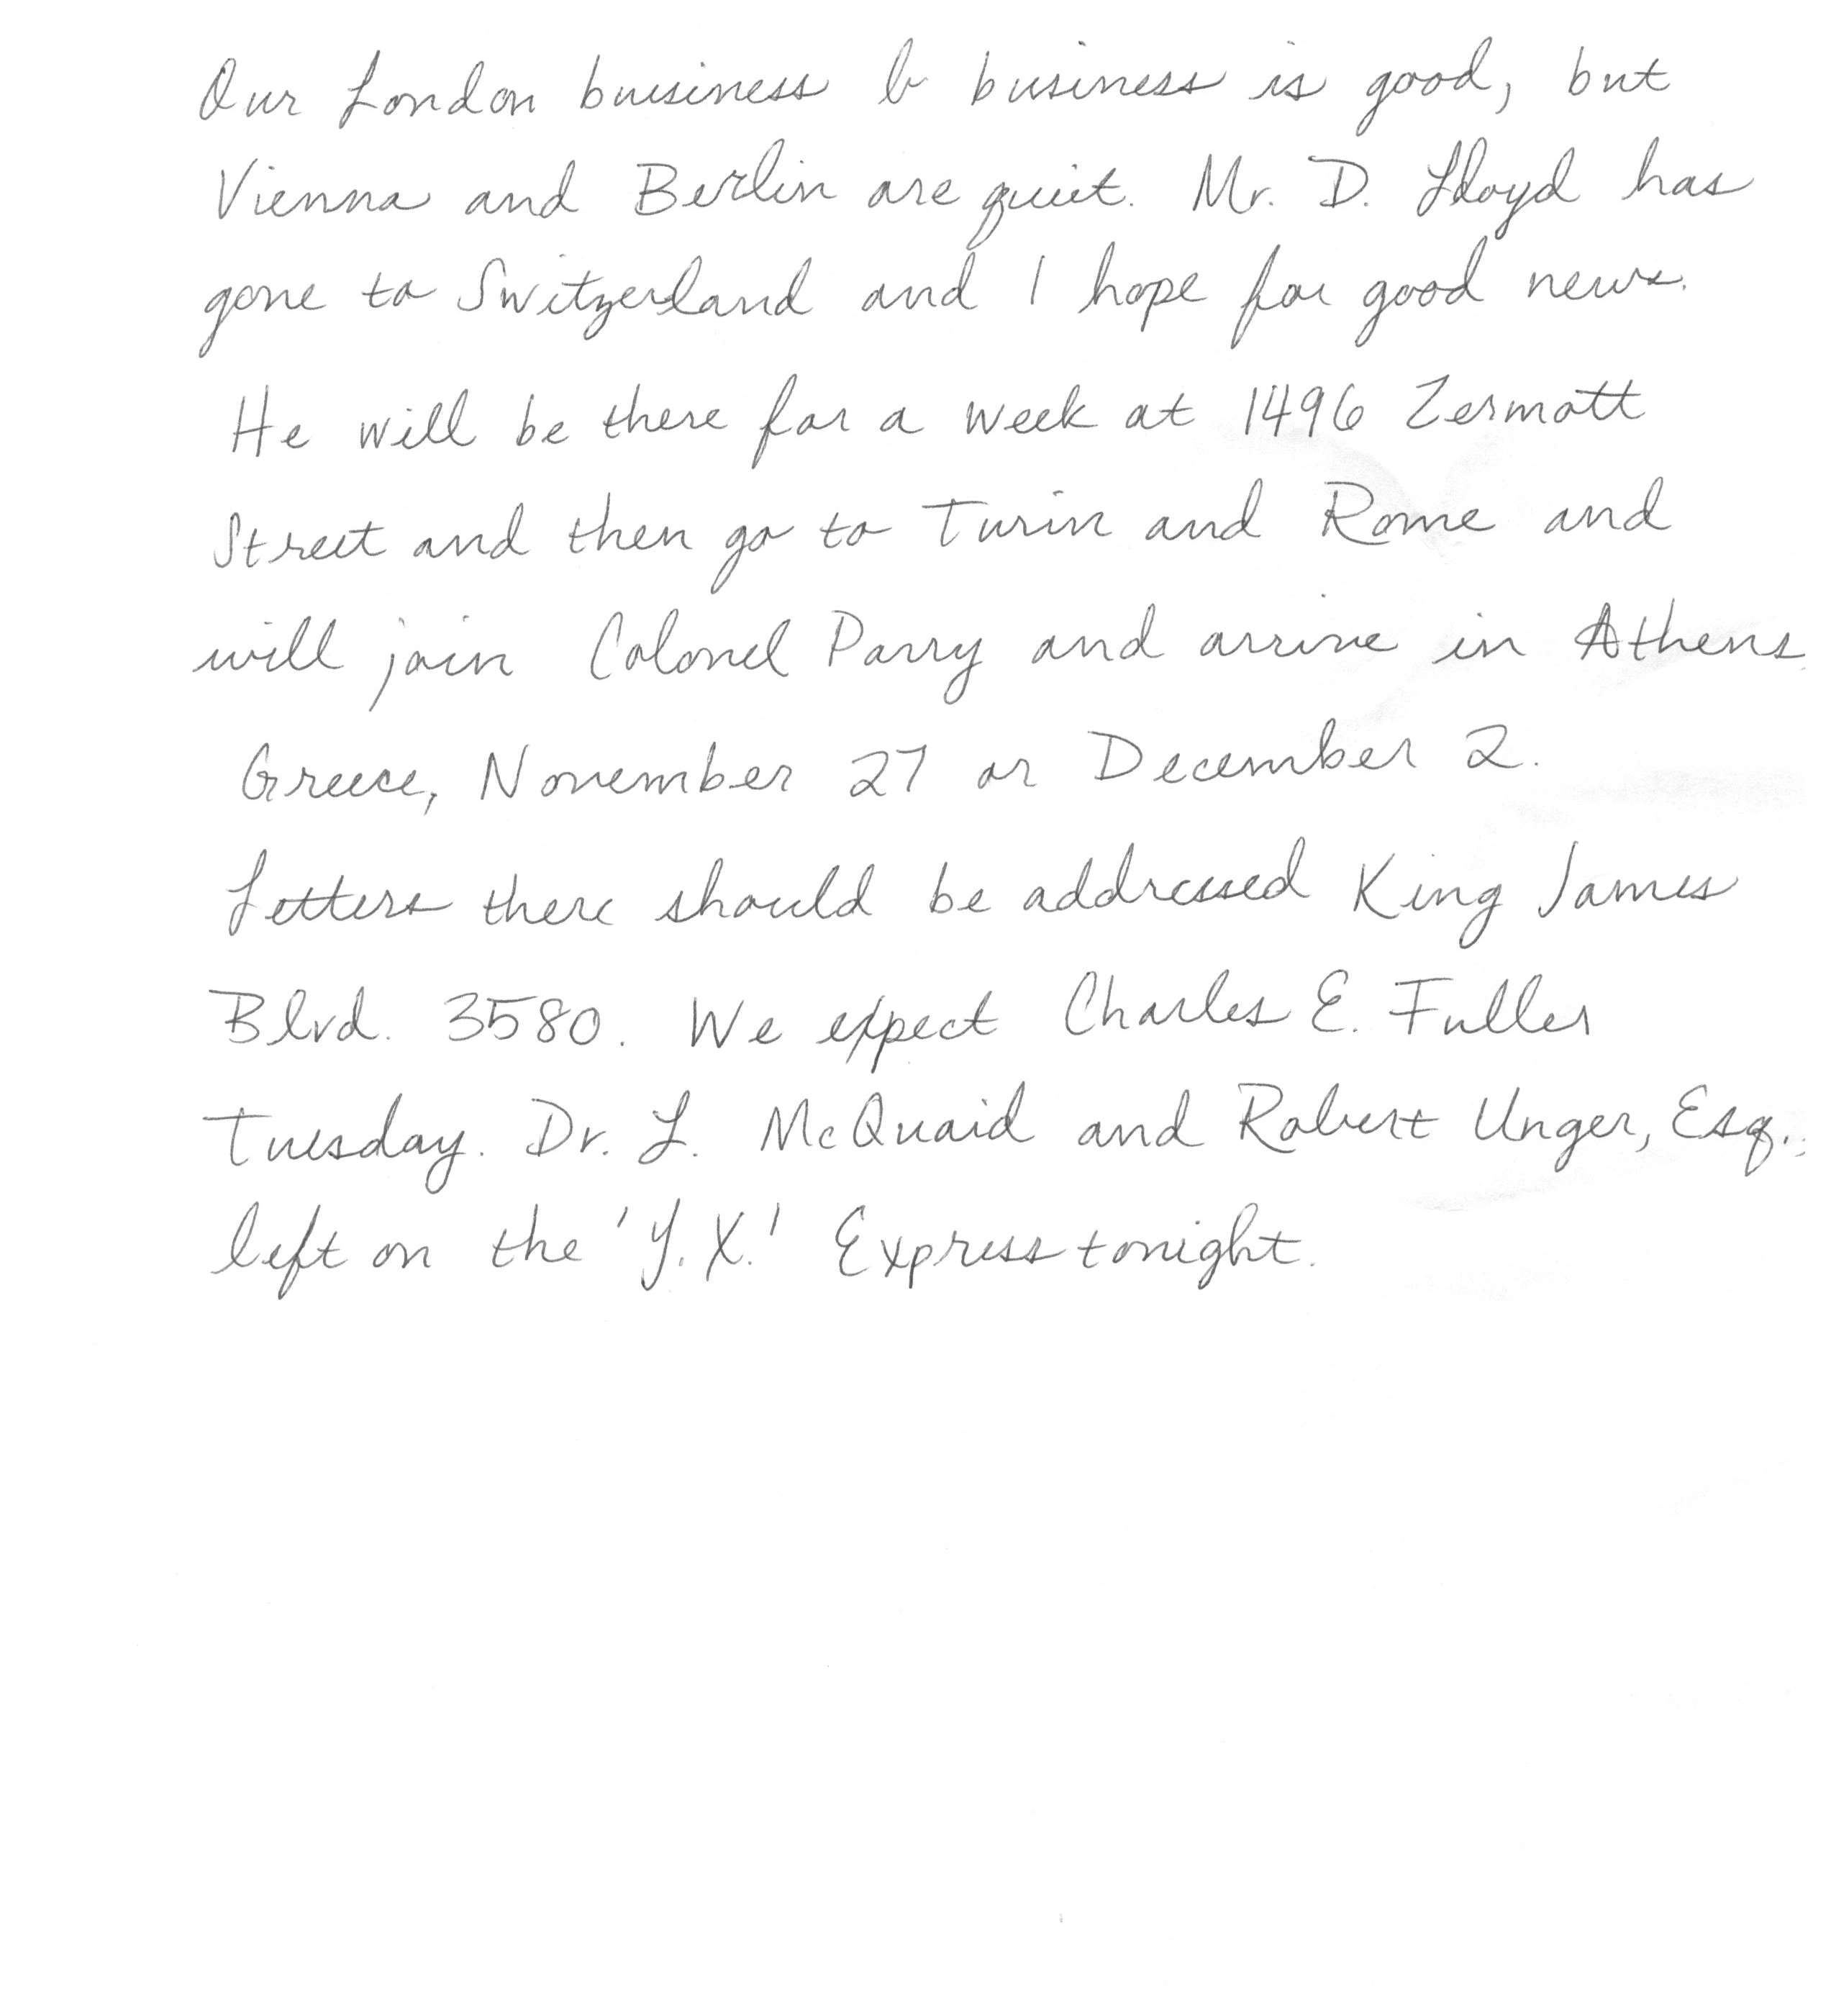 Our London buisiness b business is good, but
Vienna and Berlin are quiet. Mr. D. Lloyd has
gone to Switzerland and I hope for good news.
He will be there for a week at 1496 Zermott
Street and then go to Turin and Rome and
will join Colonel Parry and arrive in Athens
Greece, November 27 or December 2.
Letters there should be addressed King James
Blvd. 3580. We expect Charles E. Fuller
Tuesday. Dr. L. McQuaid and Robert Unger, Esq.,
left on the 'Y.X.' Express tonight.